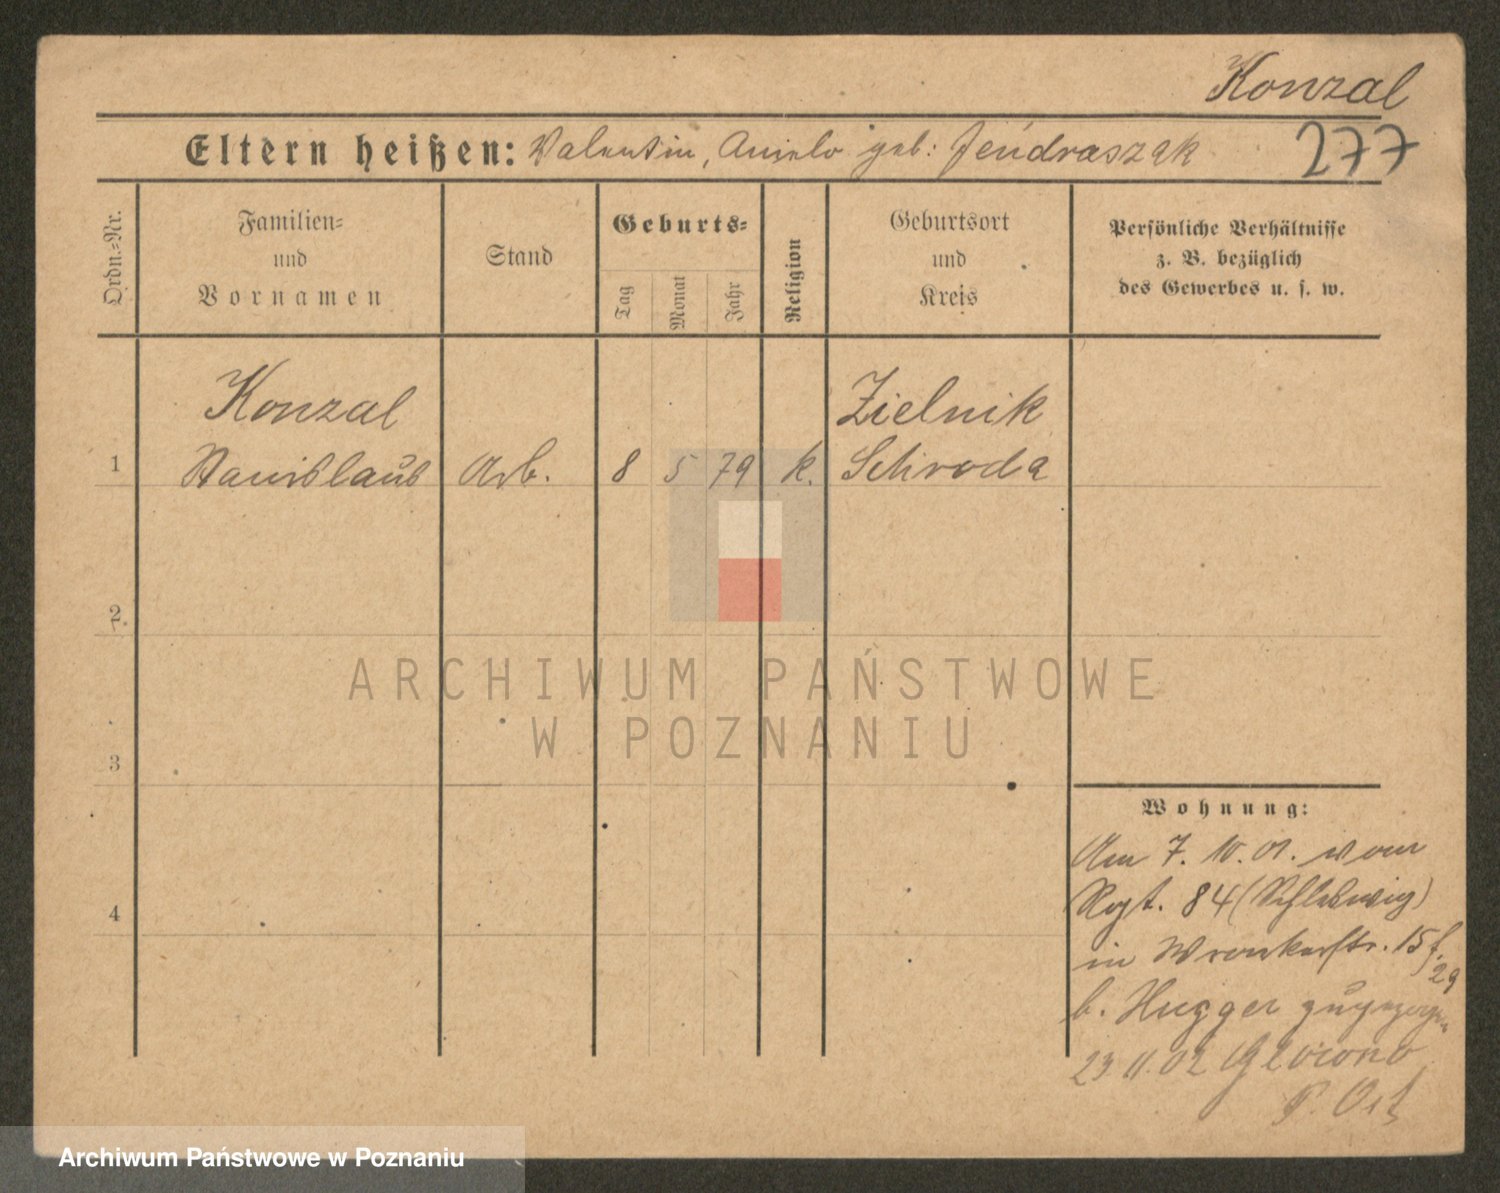 Konzal
277
Eltern heißen: Valentin, Aniela geb: Jendraszak
Ordn.=Nr.
Familien=
und
Vornamen
Stand
Geburts=
Tag
Monat
Jahr
Religion
Geburtsort
und
Kreis
Persönliche Verhältnisse
z. B. bezüglich
des Gewerbes u. s. w.
Konzal
Zielnik
1 Stanislaus Arb. 8 5 79 k. Schroda
2
3
4
Wohnung:
Am 7. 10. 01. vom
Regt. 84 (Schleswig)
in Wronkerstr. 15
29
b. Hugger zugezogen
23.11.02 Glowno
P. Ost
ARCHIWUM PAŃSTWOWE
W POZNANIU
Archiwum Państwowe w Poznaniu